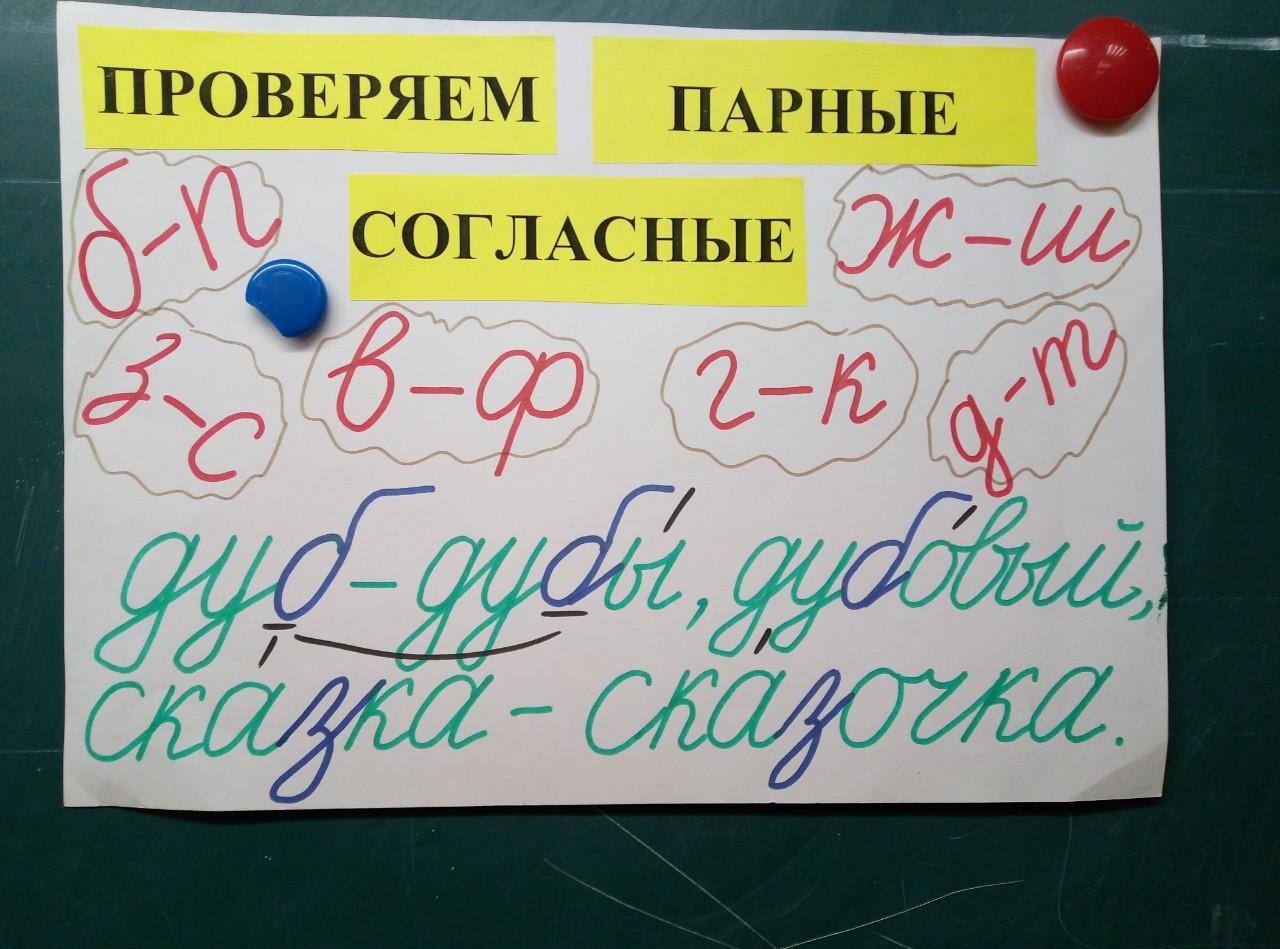 ПРОВЕРЯЕМ ПАРНЫЕ
СОГЛАСНЫЕ
б-п ж-ш
з-с в-ф г-к д-т
дуб-дубы́, дубо́вый,
ска́зка-ска́зочка.